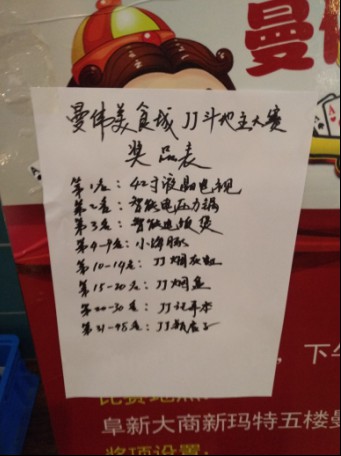 曼伟美食城JJ斗地主大赛
奖品表
第1名:42寸液晶电视
第2名:智能电压力锅
第3名:智能电饭煲
第4-9名:小海豚
第10-14名:JJ烟灰缸
第15-20名:JJ烟盒
第20-30名:JJ记事本
第31-48名:JJ
曼
A
A
下午
阜新大商新玛特五楼曼
奖项设置: